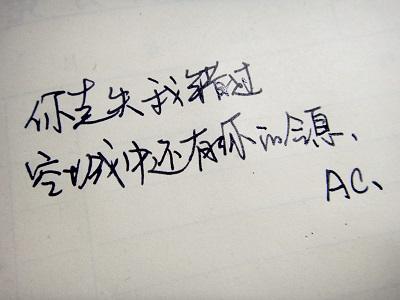 你走失我错过
空城中还有你的念息、
AC、